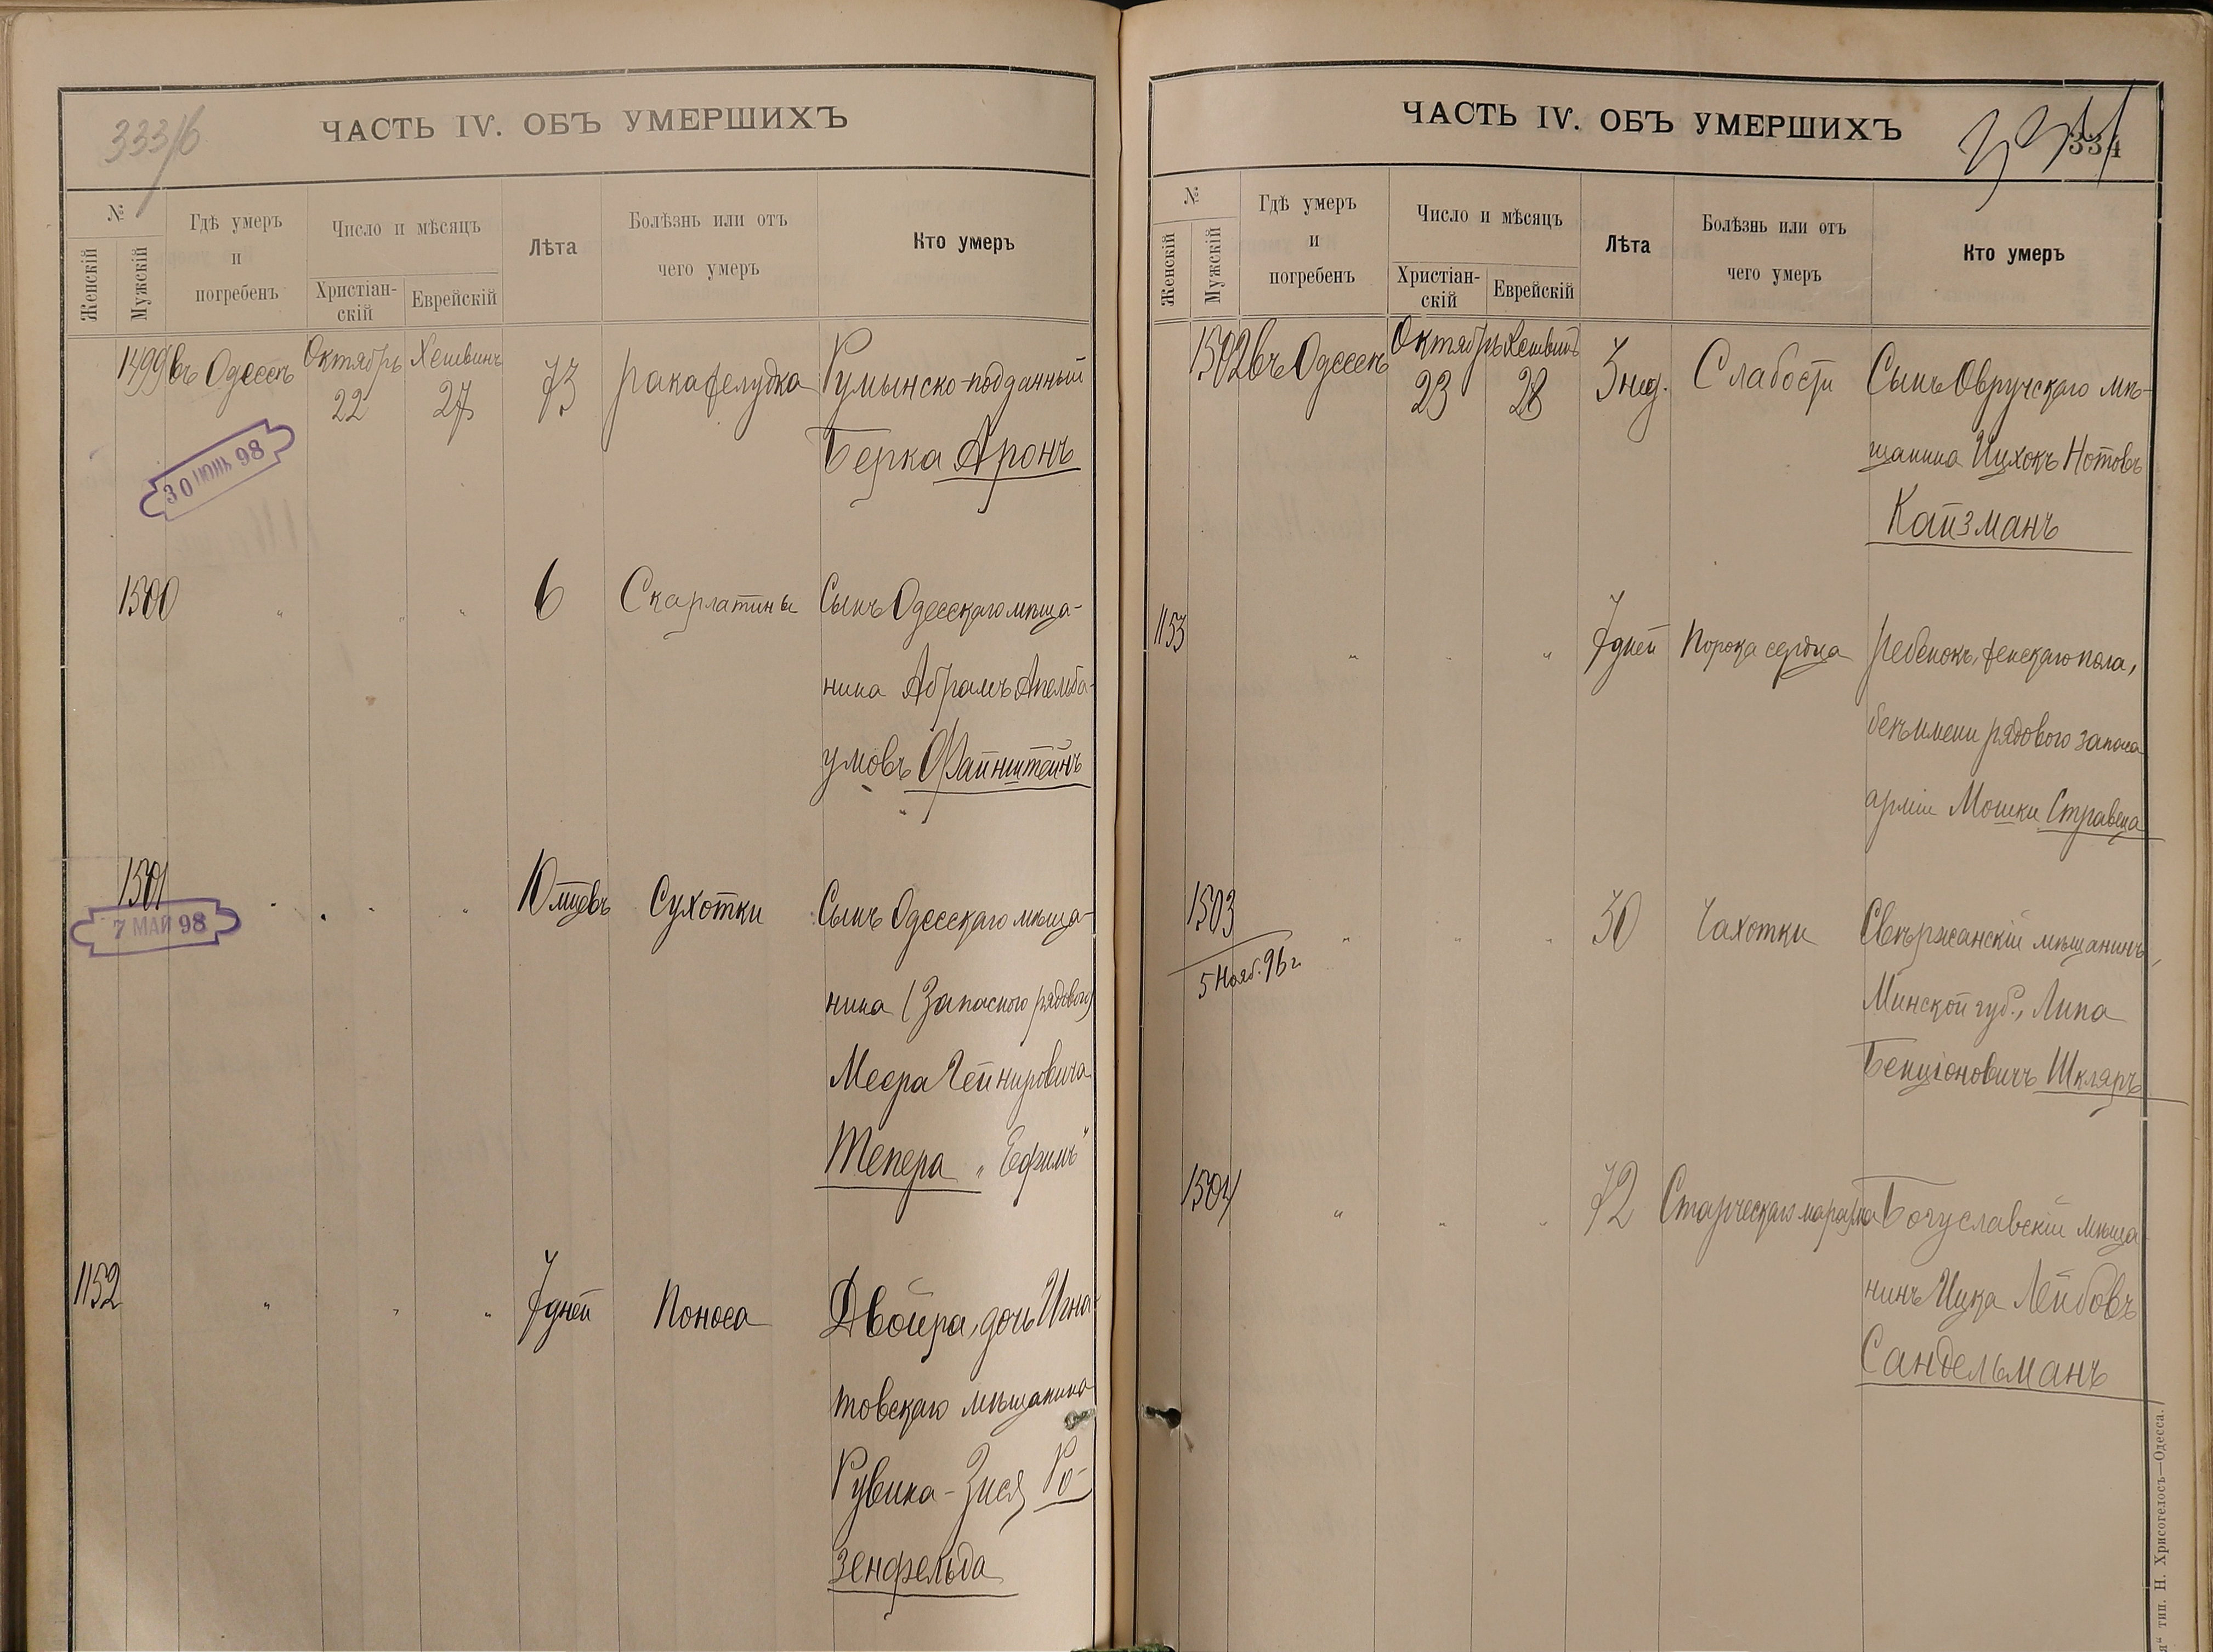 333/б
ЧАСТЬ IV. ОБЪ УМЕРШИХЪ
№
Женскій
Мужскій
Гдѣ умеръ
и
погребенъ
Число и мѣсяцъ
Христіан-
скій
Еврейскій
Лѣта
Болѣзнь или отъ
чего умеръ
Кто умеръ
1499 въ Одессѣ Октябрь Хешвинъ 73 рака желудка Румынско-подданный
22 27
Берка Аронъ
30 ІЮНЬ 98
1500 " " " 6 Скарлатины Сынъ Одесскаго мѣща-
нина Абрамъ Апельба-
умовъ Файнштейнъ
1501 " " " 10 мцевъ Сухотки Сынъ Одесскаго мѣща-
7 МАЙ 98
нина (Запасного рядового)
Меера
Тепера „Ефимъ"
1152 " " " 7 дней Поноса Двойра, дочь Игна-
товскаго мѣщанина
Рувина-Зися Ро-
зенфельда
ЧАСТЬ IV. ОБЪ УМЕРШИХЪ
334
334
№
Женскій
Мужскій
Гдѣ умеръ
и
погребенъ
Число и мѣсяцъ
Христіан-
скій
Еврейскій
Лѣта
Болѣзнь или отъ
чего умеръ
Кто умеръ
1502 въ Одессѣ Октябрь Хешвинъ 3 нед. Слабости Сынъ Овручскаго мѣ-
23 28
щанина Ицхокъ Нотовъ
Кайзманъ
1153 " " " 7 дней Порока сердца Ребенокъ, женскаго пола,
безъ имени рядового запаса
арміи Мошки Стравеца
1503 " " " 30 Чахотки Свержанскій мѣщанинъ,
5 Нояб. 96 г.
Минской губ., Липа
Бенціоновичъ Шкляръ
1504 " " " 72 Старческаго маразма Богуславскій мѣща-
нинъ Ицка Лейбовъ
Сандельманъ
тип. Н. Хрисогелосъ—Одесса.